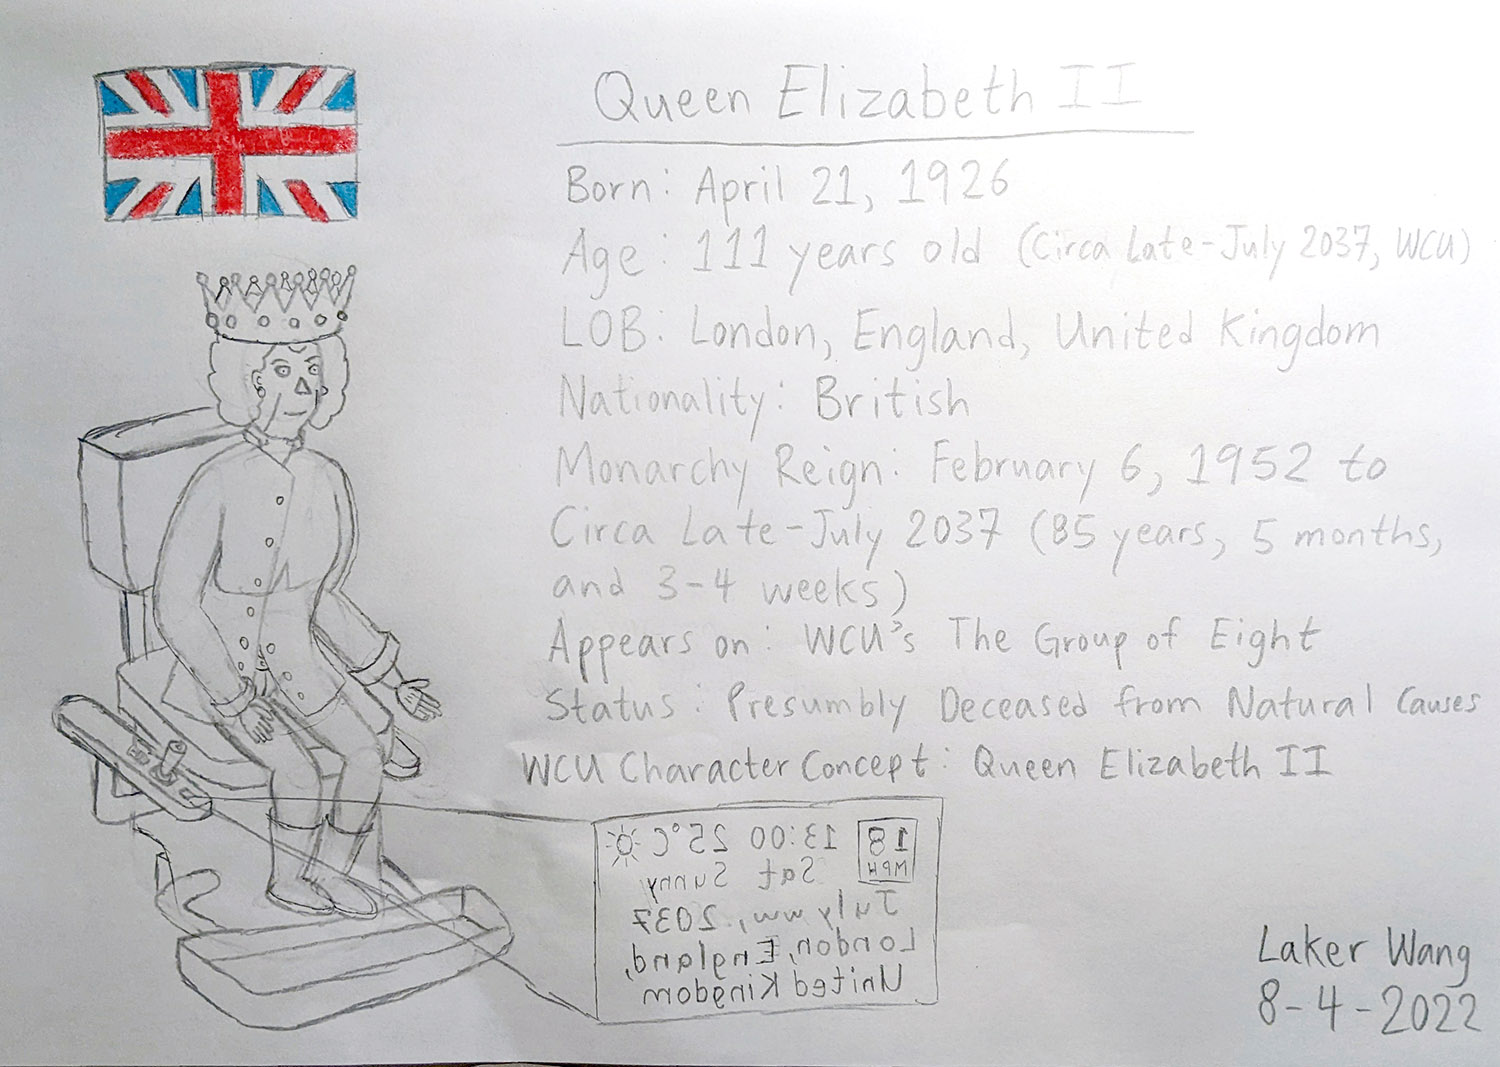 Queen Elizabeth II
Born: April 21, 1926
Age: 111 years old (Circa Late-July 2037, WCU)
LOB: London, England, United Kingdom
Nationality: British
Monarchy Reign: February 6, 1952 to
Circa Late-July 2037 (85 years, 5 months,
and 3-4 weeks)
Appears on: WCU's The Group of Eight
Status: Presumbly Deceased from Natural Causes
WCU Character Concept: Queen Elizabeth II
18 MPH 13:00 25°C
Sat Sunny
July , 2037
London, England,
United Kingdom
Laker Wang
8-4-2022